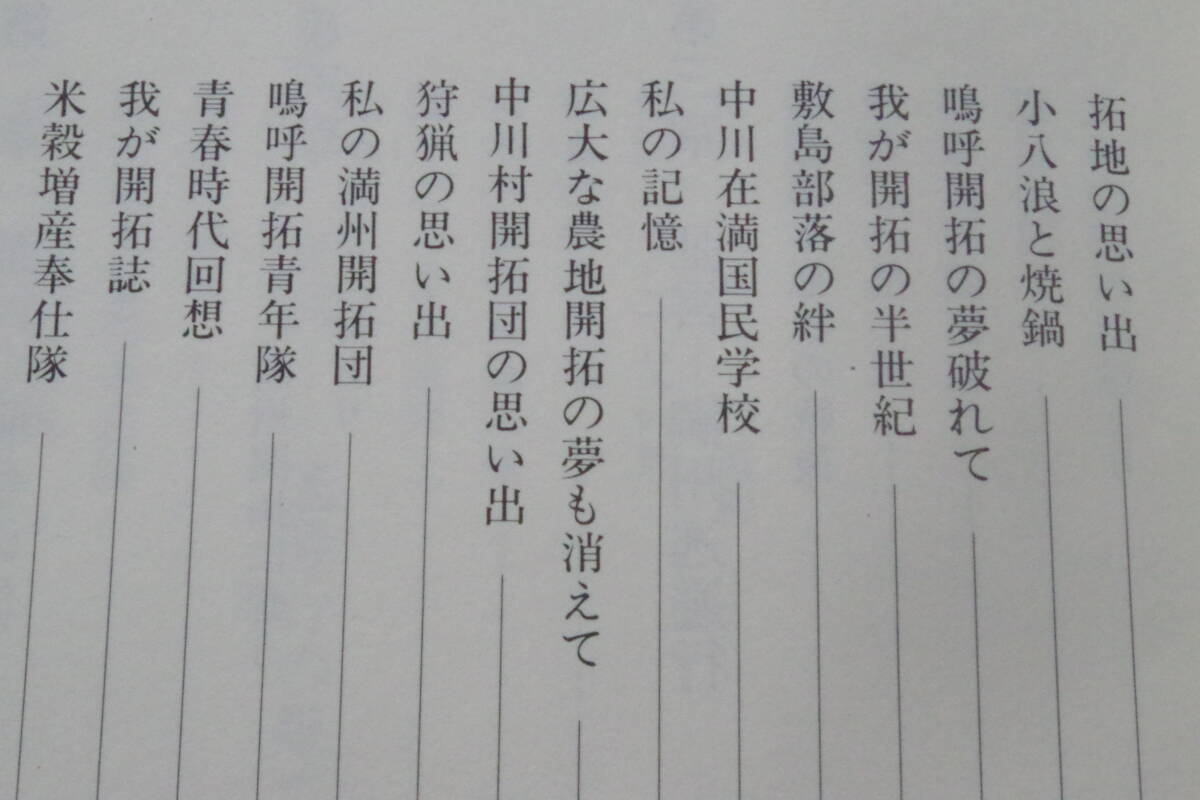 拓地の思い出
小八浪と焼鍋
鳴呼開拓の夢破れて
我が開拓の半世紀
敷島部落の絆
中川在満国民学校
私の記憶
広大な農地開拓の夢も消えて
中川村開拓団の思い出
狩猟の思い出
私の満州開拓団
鳴呼開拓青年隊
青春時代回想
我が開拓誌
米穀増産奉仕隊